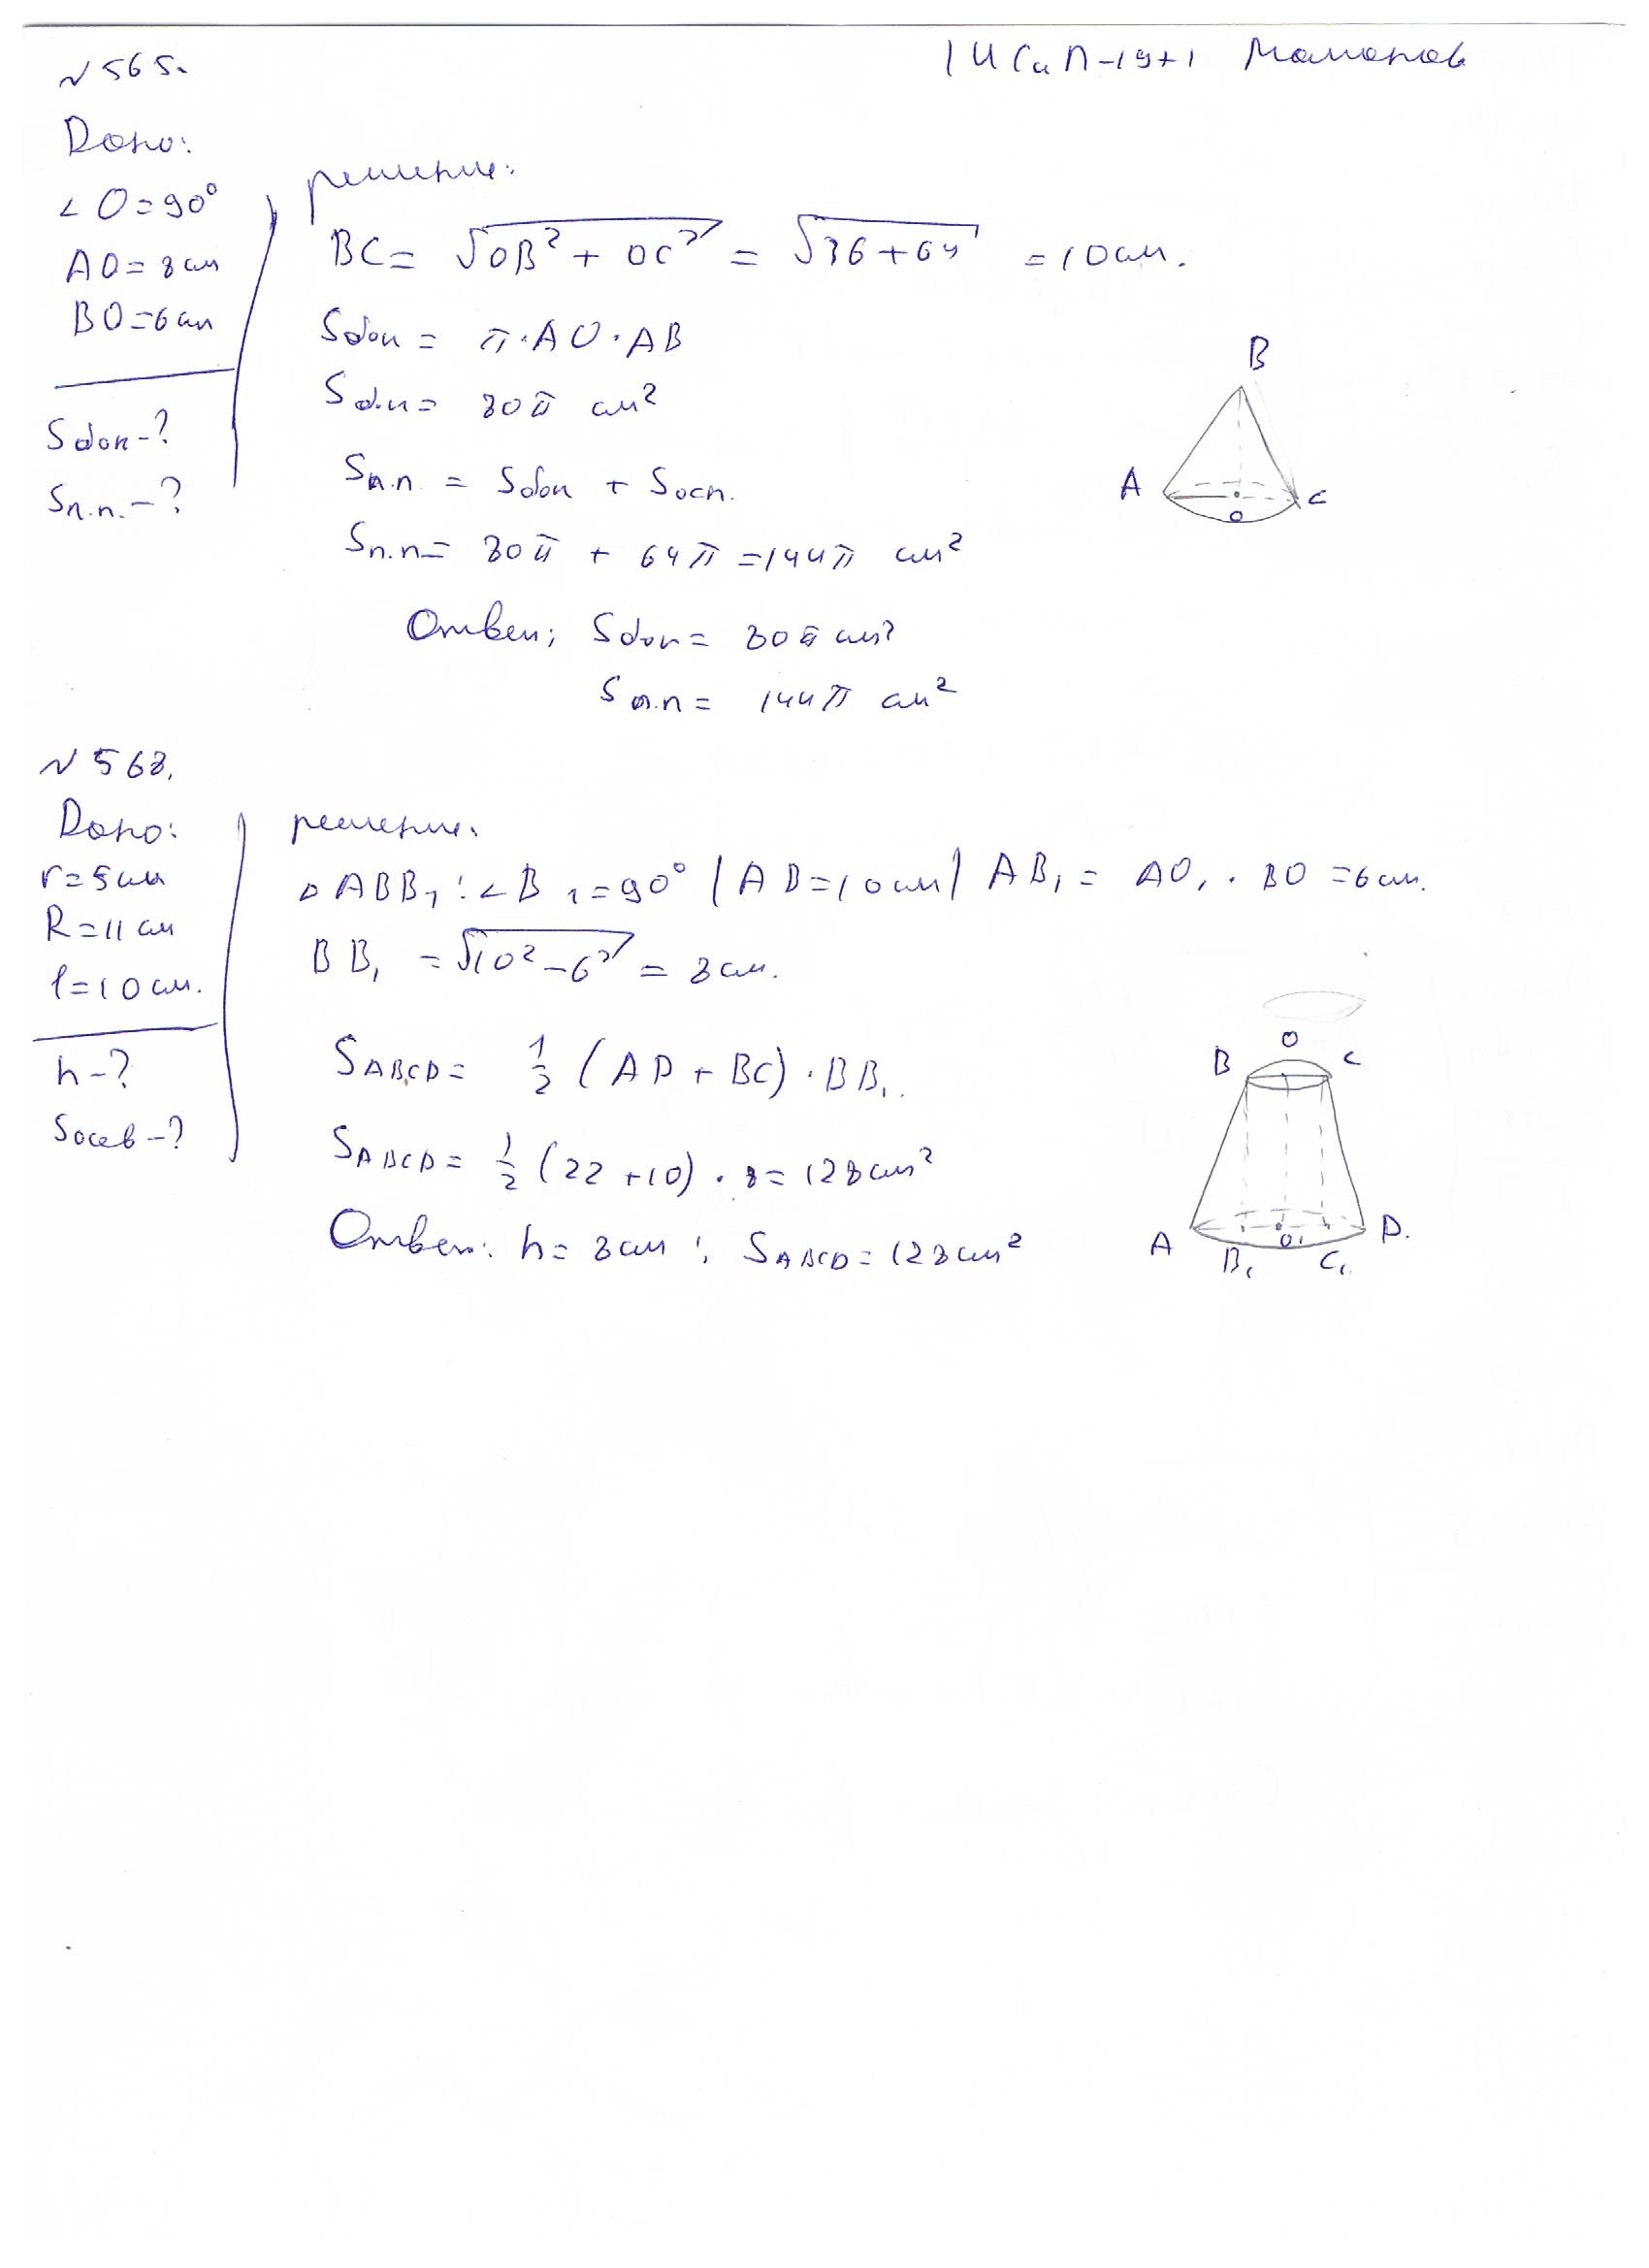 1ИСиП-19+1 Мамонов
№ 565.
Дано:
∠O=90°
AO=8см
BO=6см
Sбок-?
Sп.п.-?
решение:
BC= √OB²+OC² = √36+64 =10см.
Sбок = π·AO·AB
Sб.п= 80π см²
Sп.п. = Sбок + Sосн.
Sп.п= 80π + 64π =144π см²
Ответ; Sбок= 80π см²
Sп.п= 144π см²
B
A
C
O
№ 568.
Дано:
r=5см
R=11см
l=10см.
h-?
Sосев-?
решение.
△ABB₁:∠B₁=90° (AB=10см) AB₁= AO₁. BO =6см.
BB₁ =√10²-6² = 8см.
SABCD= ½ (AD + BC)·BB₁.
SABCD= ½ (22+10)·8=128см²
Ответ: h=8см; SABCD=128см²
O
B C
A D.
B₁ O₁ C₁